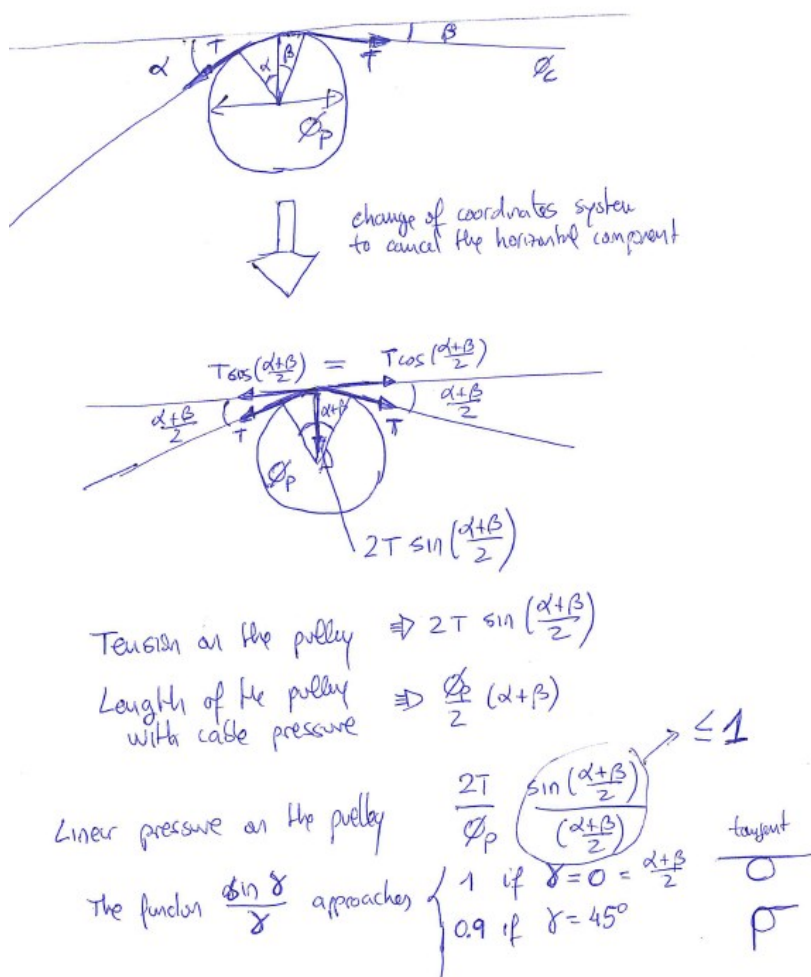 α T α β T β
Ø_c
Ø_p
change of coordinates system
to cancel the horizontal component
T cos(α+β/2) = T cos(α+β/2)
α+β/2 T α+β T α+β/2
Ø_p
2T sin(α+β/2)
Tension on the pulley ⇛ 2T sin(α+β/2)
Length of the pulley ⇛ Ø_p/2 (α+β)
with cable pressure
≤ 1
Linear pressure on the pulley 2T/Ø_p sin(α+β/2)/(α+β/2)
tangent
The function sin γ/γ approaches { 1 if γ = 0 = α+β/2
0.9 if γ = 45°